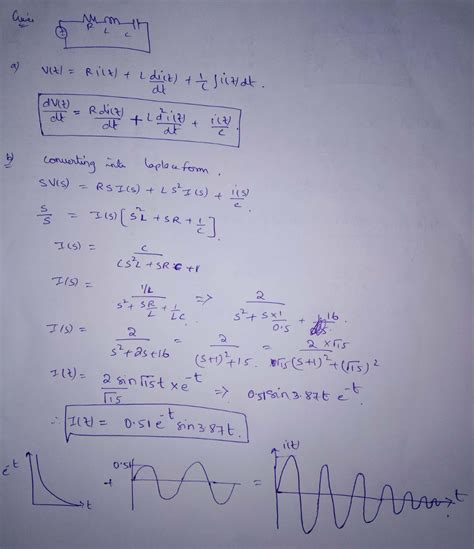 Given
R L C
a) V(t) = Ri(t) + L di(t)/dt + 1/C ∫i(t)dt.
dV(t)/dt = R di(t)/dt + L d²i(t)/dt + i(t)/C.
b) converting into laplace form.
SV(s) = RSI(s) + LS²I(s) + i(s)/C.
S/S = I(s)[S²L + SR + 1/C].
I(s) = C/(CS²L + SRC + 1)
I(s) = (1/L)/(S² + SR/L + 1/LC) => 2/(S² + S×1/0.5 + 16)
I(s) = 2/(S² + 2S + 16) = 2/((S+1)² + 15) = 2×√15/(√15 (S+1)² + (√15)²)
I(t) = 2 sin√15t × e^-t/√15 => 0.51 sin 3.87t e^-t
∴ I(t) = 0.51 e^-t sin 3.87t.
e^-t t + 0.51 = i(t) t